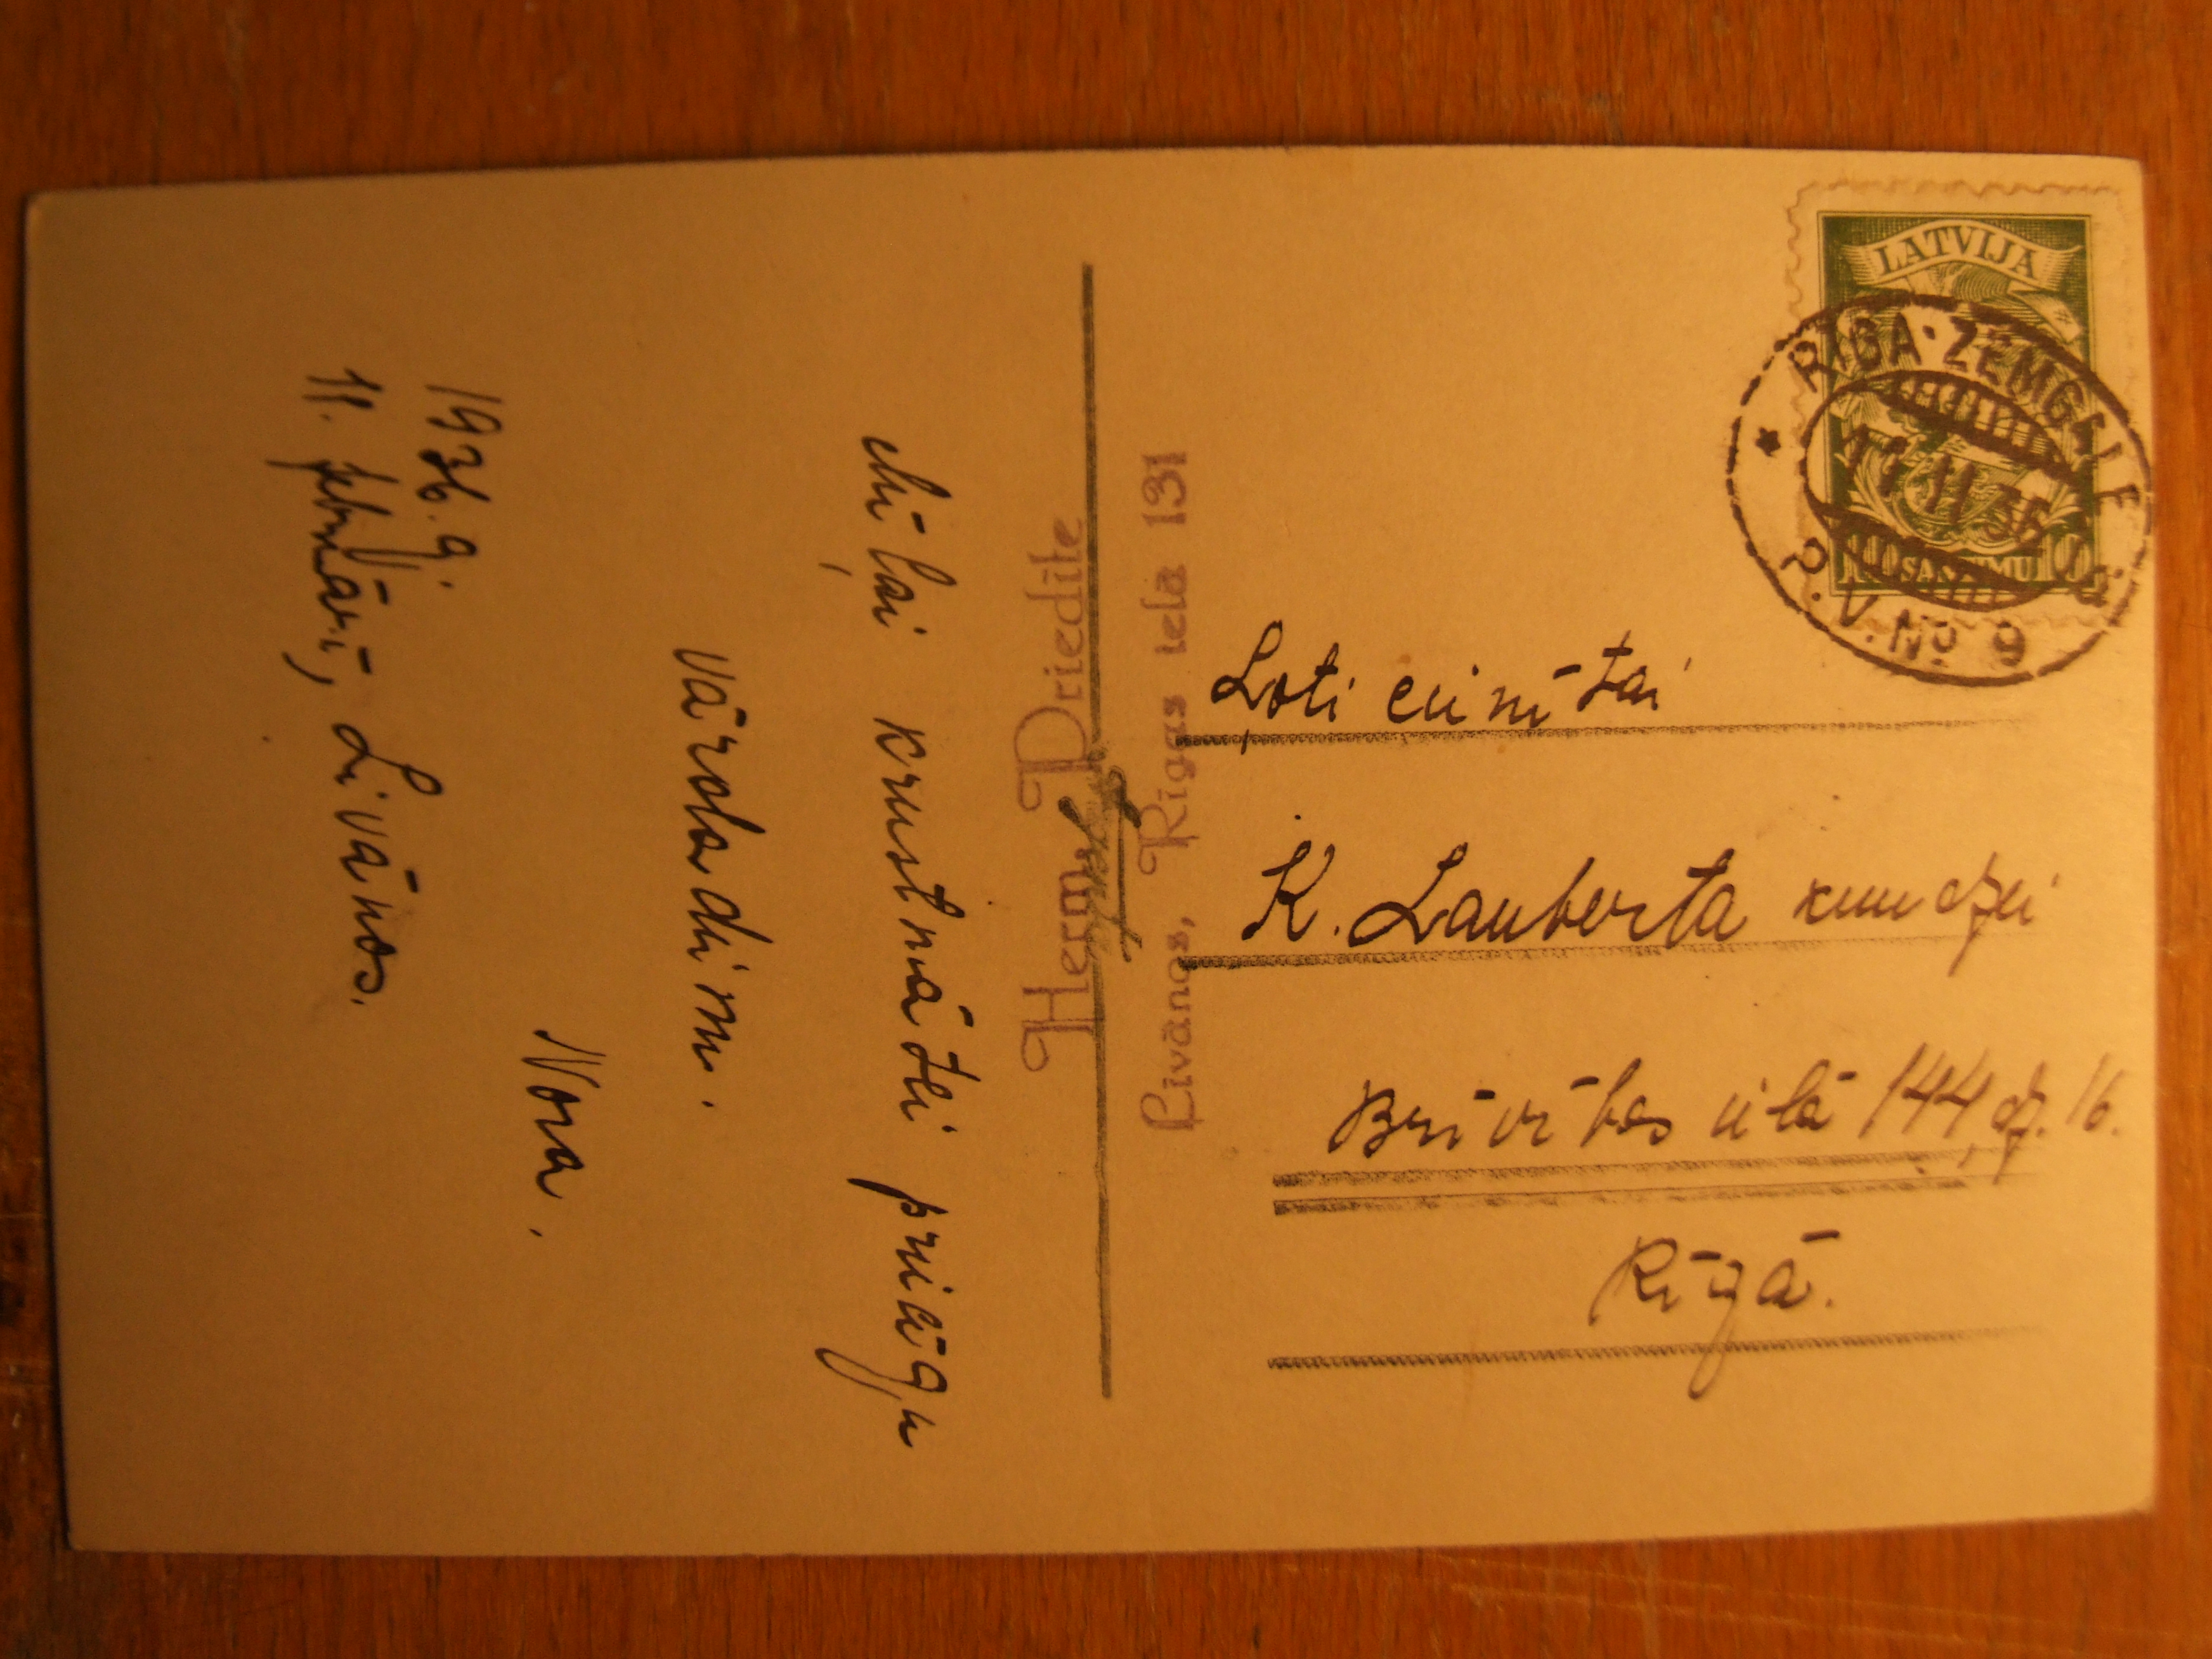 Mīļai krustmātei priecīgu
vārda dienu.
Nora.
1936.g.
11. februārī, Līvānos.
Herm. Priedīte
Līvānos, Rīgas ielā 131
LATVIJA
10 SANTIMU 10
RIGA-ZEMGALE
11 II 36
P.V. No 9
Ļoti cienītai
K. Lauberta kundzei
Brīvības ielā 144, dz. 16.
Rīgā.